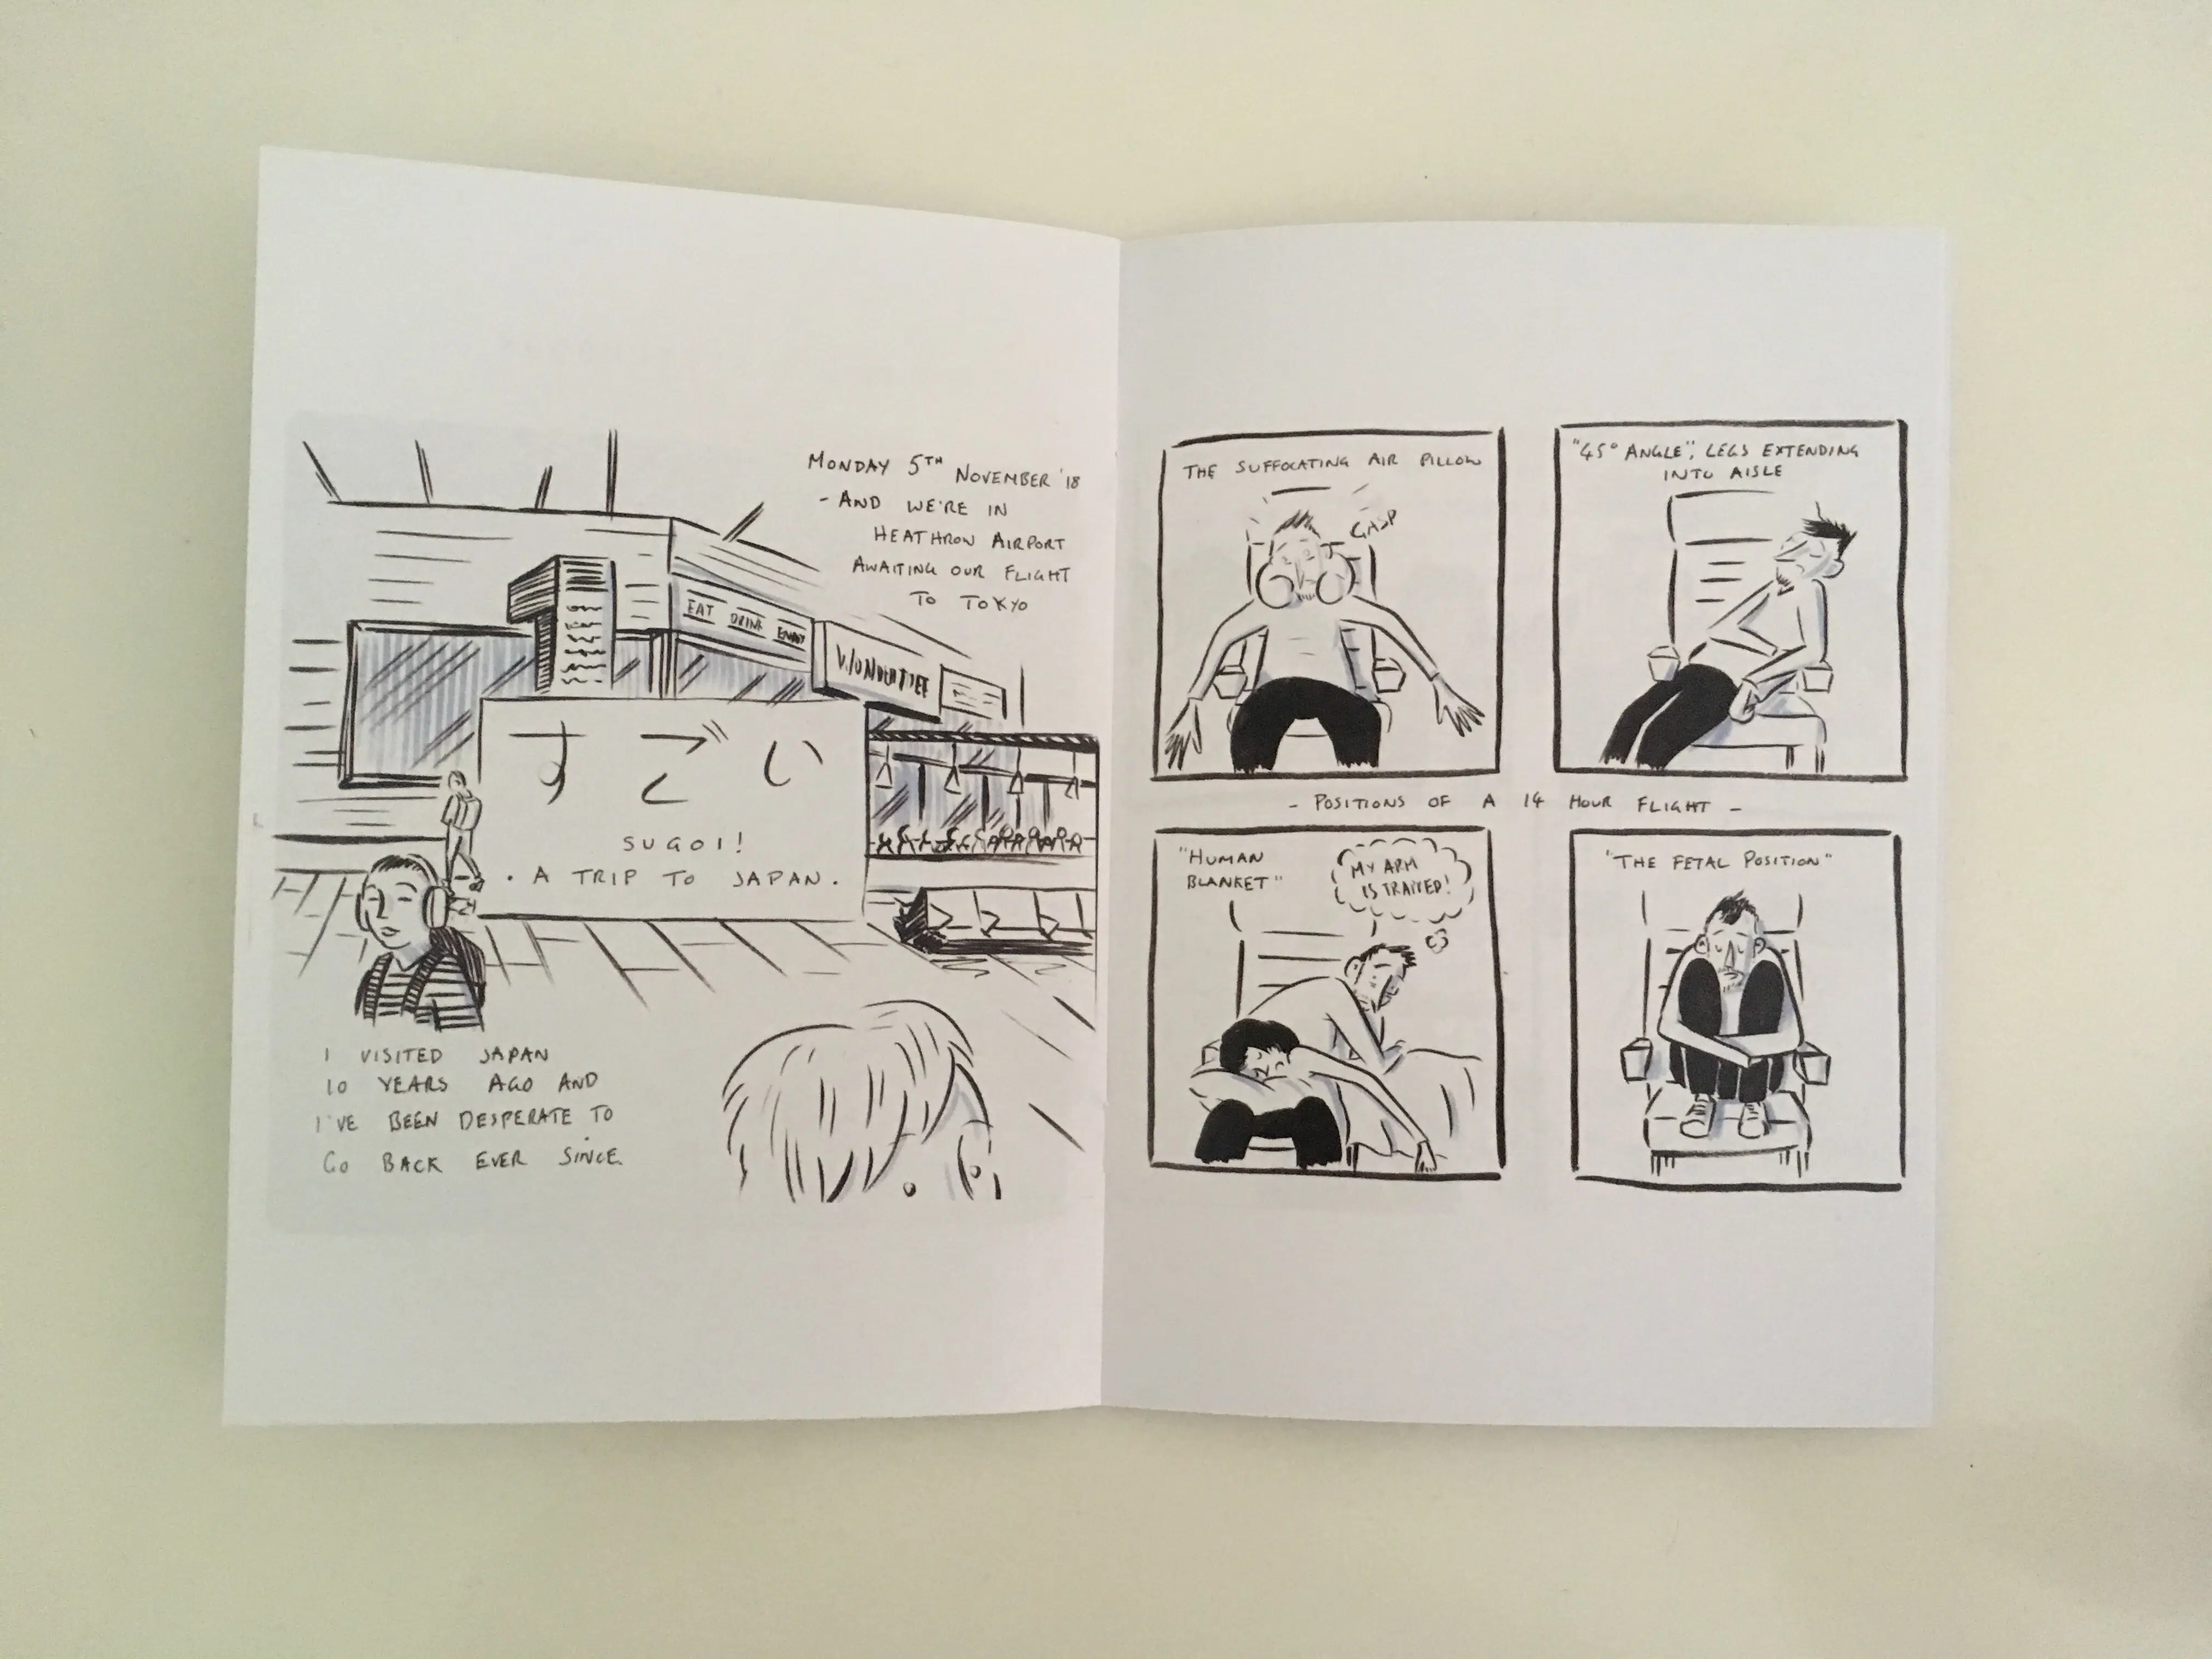 MONDAY 5TH NOVEMBER '18
- AND WE'RE IN
HEATHROW AIRPORT
AWAITING OUR FLIGHT
TO TOKYO
EAT DRINK ENJOY
WONDERTREE
すごい
SUGOI!
. A TRIP TO JAPAN .
I VISITED JAPAN
10 YEARS AGO AND
I'VE BEEN DESPERATE TO
GO BACK EVER SINCE
THE SUFFOCATING AIR PILLOW
GASP
"45° ANGLE", LEGS EXTENDING
INTO AISLE
- POSITIONS OF A 14 HOUR FLIGHT -
"HUMAN
BLANKET"
MY ARM
IS TRAPPED!
"THE FETAL POSITION"